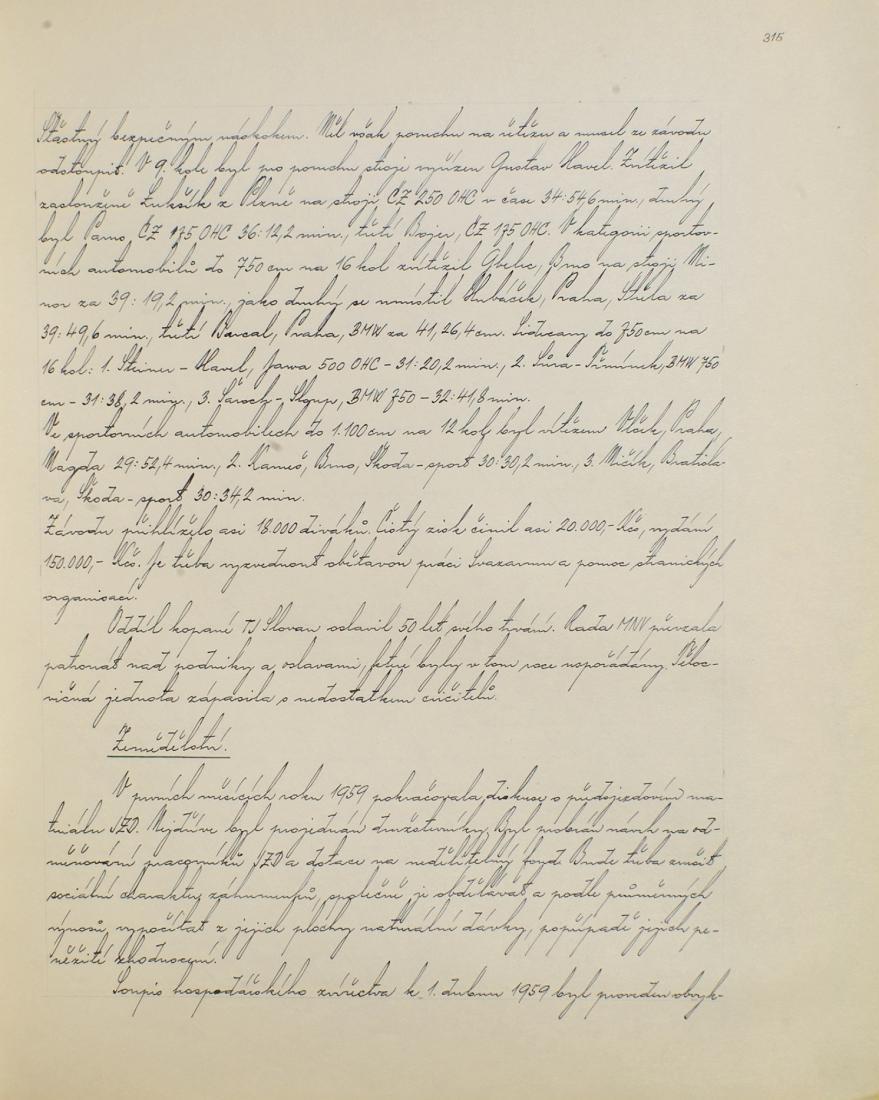 315
Šťastný bezpečným náskokem. Měl však poruchu na řetězu a musel ze závodu
odstoupit. V 9. kole byl pro poruchu stroje vyřízen Gustav Havel. Zvítězil
zaslouženě Lukšík z Plzně na stroji ČZ 250 OHC v čase 34:54,6 min., druhý
byl Parus, ČZ 175 OHC 36:12,2 min., třetí Bojer, ČZ 175 OHC. V kategorii sportov-
ních automobilů do 750 cm na 16 kol zvítězil Gbelec, Brno na stroji Mi-
nor za 39:19,2 min., jako druhý se umístil Hubáček, Praha, Střela za
39:49,6 min., třetí Barcal, Praha, BMW za 41,26,4 cm. Sidecary do 750 cm na
16 kol: 1. Steiner - Havel, Jawa 500 OHC - 31:20,2 min., 2. Sůra - Pšminek, BMW 750
cm - 31:38,2 min., 3. Šaroch - Sloup, BMW 750 - 32:41,8 min.
Ve sportovních automobilech do 1.100 cm na 12 kol byl vítězem Vlček, Praha,
Magda 29:52,4 min., 2. Kameš, Brno, Škoda - sport 30:30,2 min., 3. Mičík, Bratisla-
va, Škoda - sport 30:34,2 min.
Závodu přihlíželo asi 18.000 diváků. Čistý zisk činil asi 20.000,- Kčs, vydání
150.000,- Kčs. Je třeba vyzvednout obětavou práci Svazarmu a pomoc stranických
organisací.
Oddíl kopané TJ Slovan oslavil 50 let svého trvání. Rada MNV převzala
patronát nad podniky a oslavami, které byly v tom roce uspořádány. Těloc-
vičná jednota zápasila s nedostatkem cvičitelů.
Zemědělství.
V prvních měsících roku 1959 pokračovala diskuse o předsjezdovém ma-
teriálu JZD. Nejdříve byl projednán družstevníky. Byl probírán návrh na od-
měňování pracovníků JZD a dotace na nedělitelný fond. Bude třeba zrušit
sociální charakter záhumenků, společně je obdělávat a podle průměrných
výnosů vypočítat z jejich plochy naturální dávky, popřípadě jejich pe-
něžité zhodnocení.
Soupis hospodářského zvířectva k 1. dubnu 1959 byl proveden obvyk-